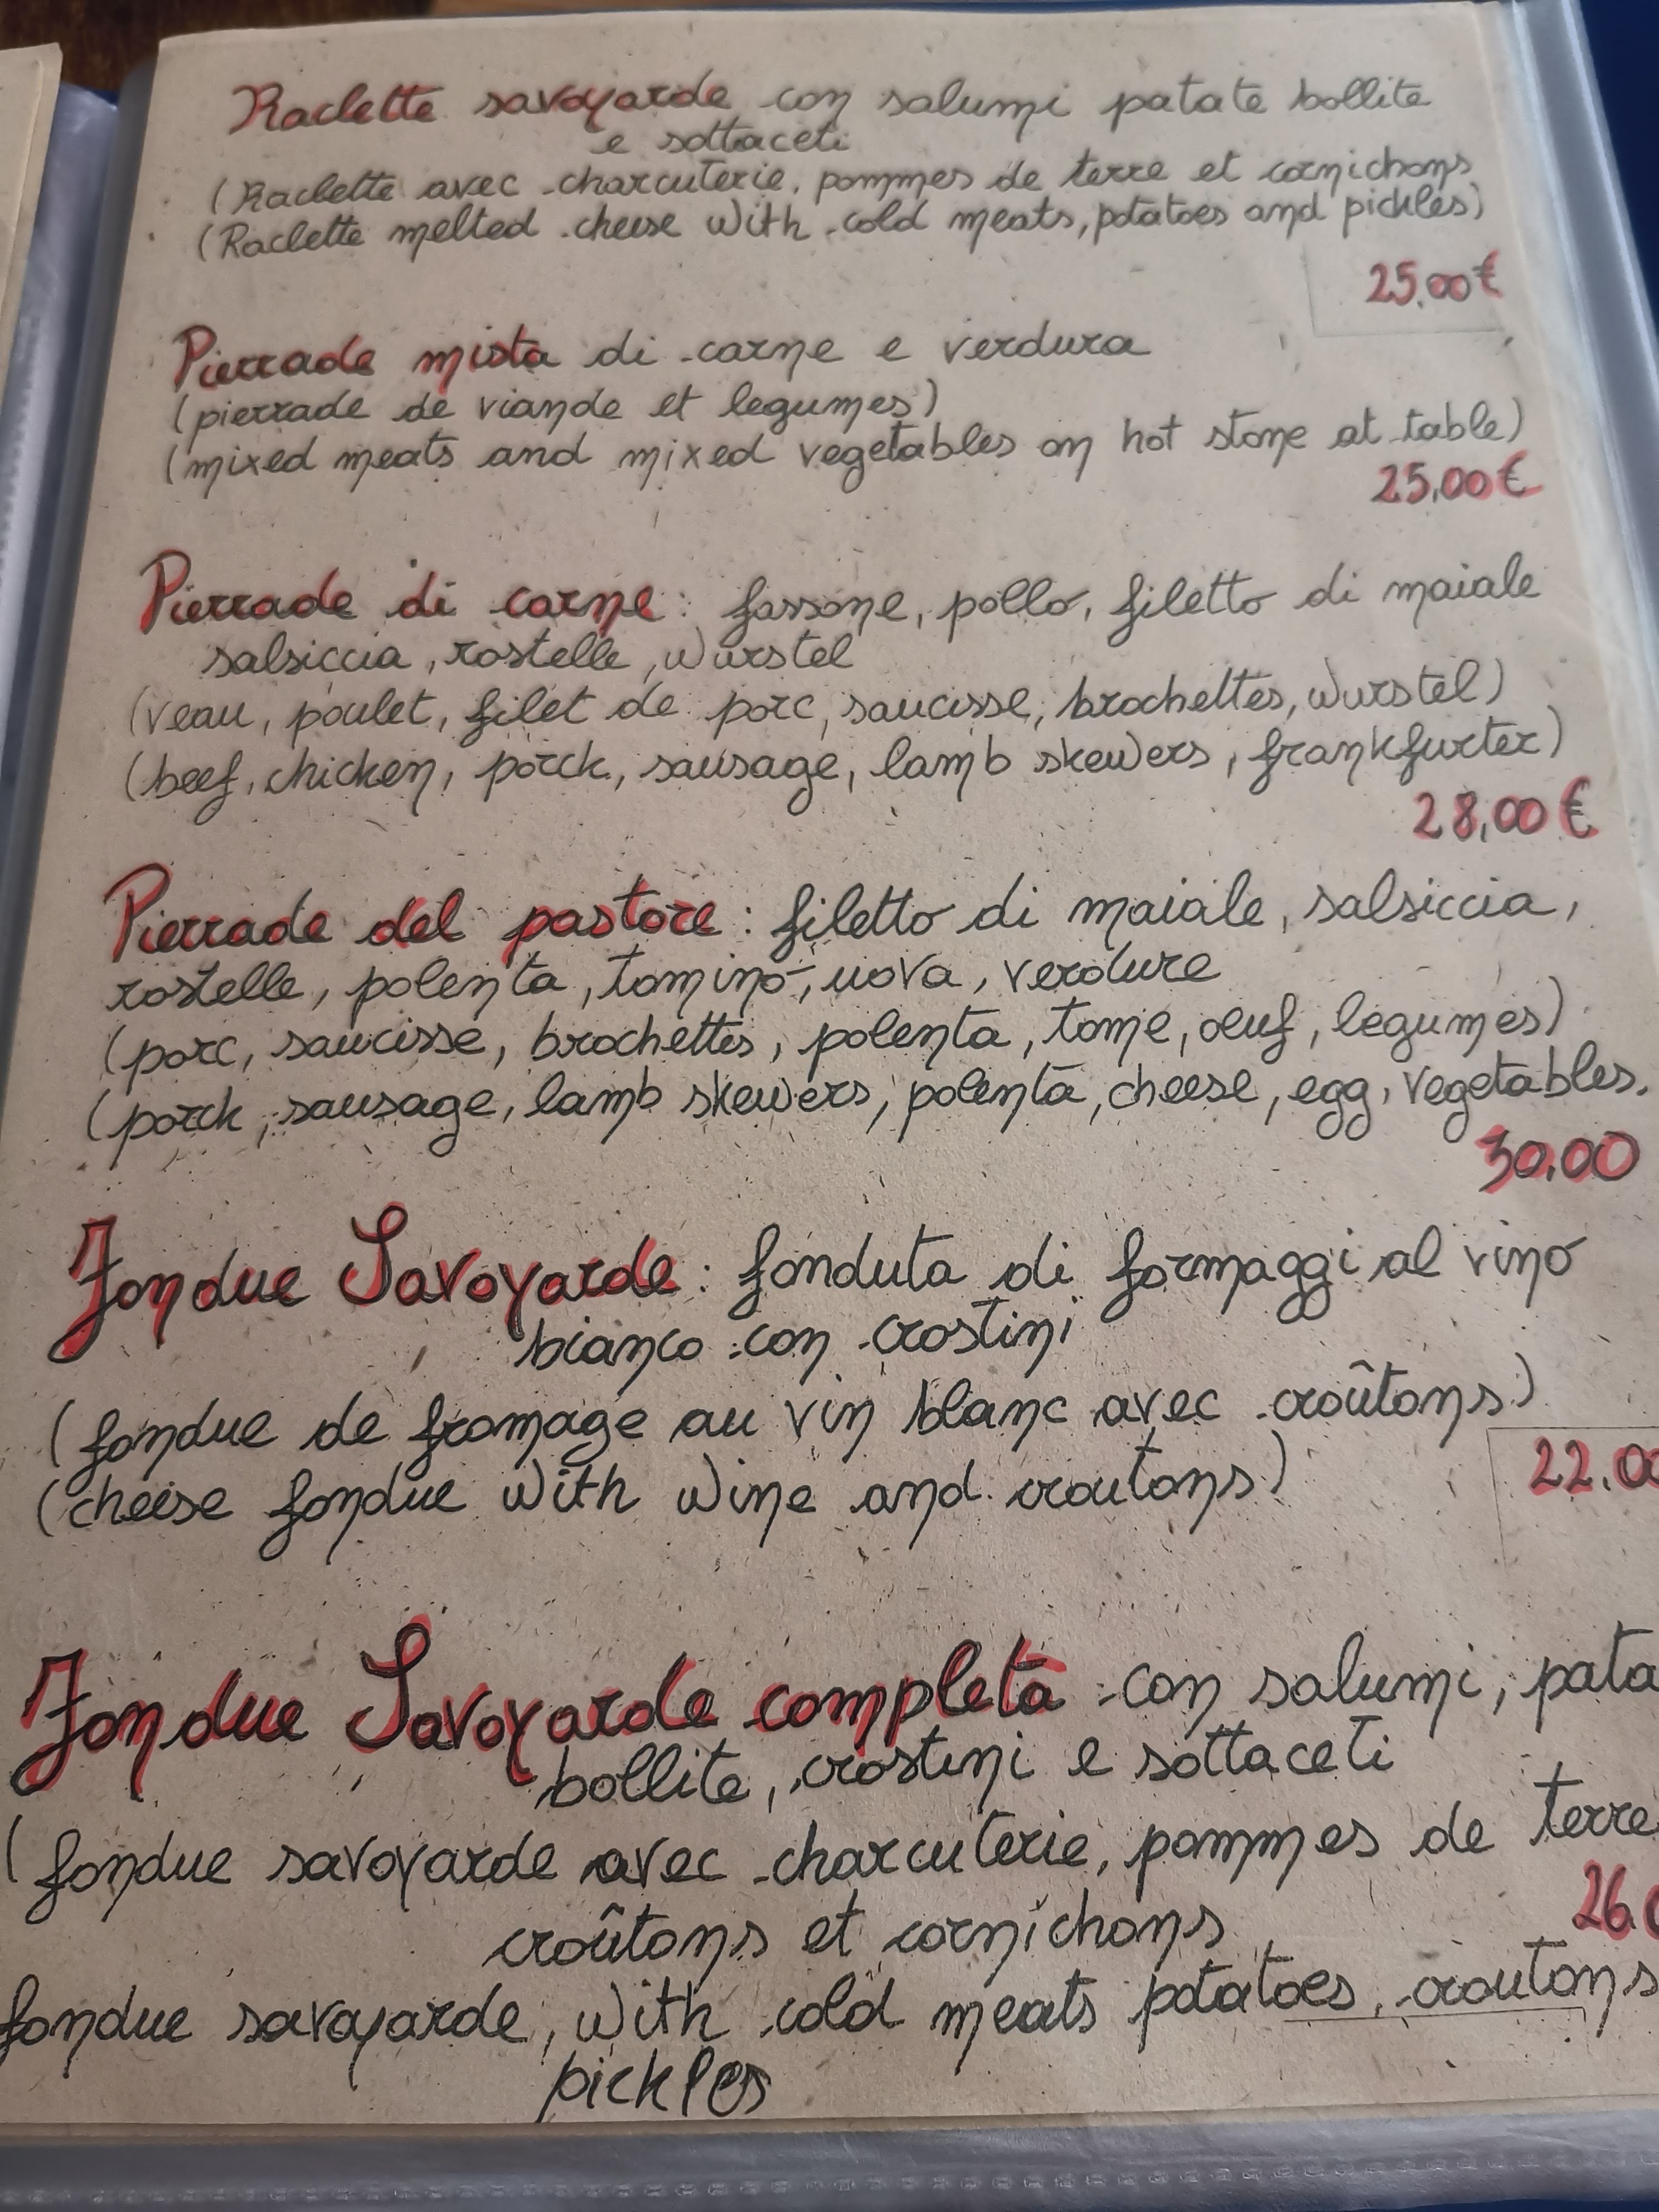 Raclette savoyarde con salumi patate bollite
e sottaceti
(Raclette avec charcuterie, pommes de terre et cornichons
(Raclette melted cheese with cold meats, potatoes and pickles)
25,00€
Pierrade mista di carne e verdura
(pierrade de viande et legumes)
(mixed meats and mixed vegetables on hot stone at table)
25,00€
Pierrade di carne: fassone, pollo, filetto di maiale
salsiccia, rostelle, wurstel
(veau, poulet, filet de porc, saucisse, brochettes, wurstel)
(beef, chicken, porck, sausage, lamb skewers, frankfurter)
28,00€
Pierrade del pastore: filetto di maiale, salsiccia,
rostelle, polenta, tomino, uova, verdure
(porc, saucisse, brochettes, polenta, tome, oeuf, legumes)
(porck, sausage, lamb skewers, polenta, cheese, egg, vegetables.
30,00
Fondue Savoyarde: fonduta di formaggi al vino
bianco con crostini
(fondue de fromage au vin blanc avec croûtons)
(cheese fondue with wine and croutons)
22.00
Fondue Savoyarde completa con salumi, pata
bollite, crostini e sottaceti
(fondue savoyarde avec charcuterie, pommes de terre
26.0
croûtons et cornichons
fondue savoyarde, with cold meats potatoes, croutons
pickles